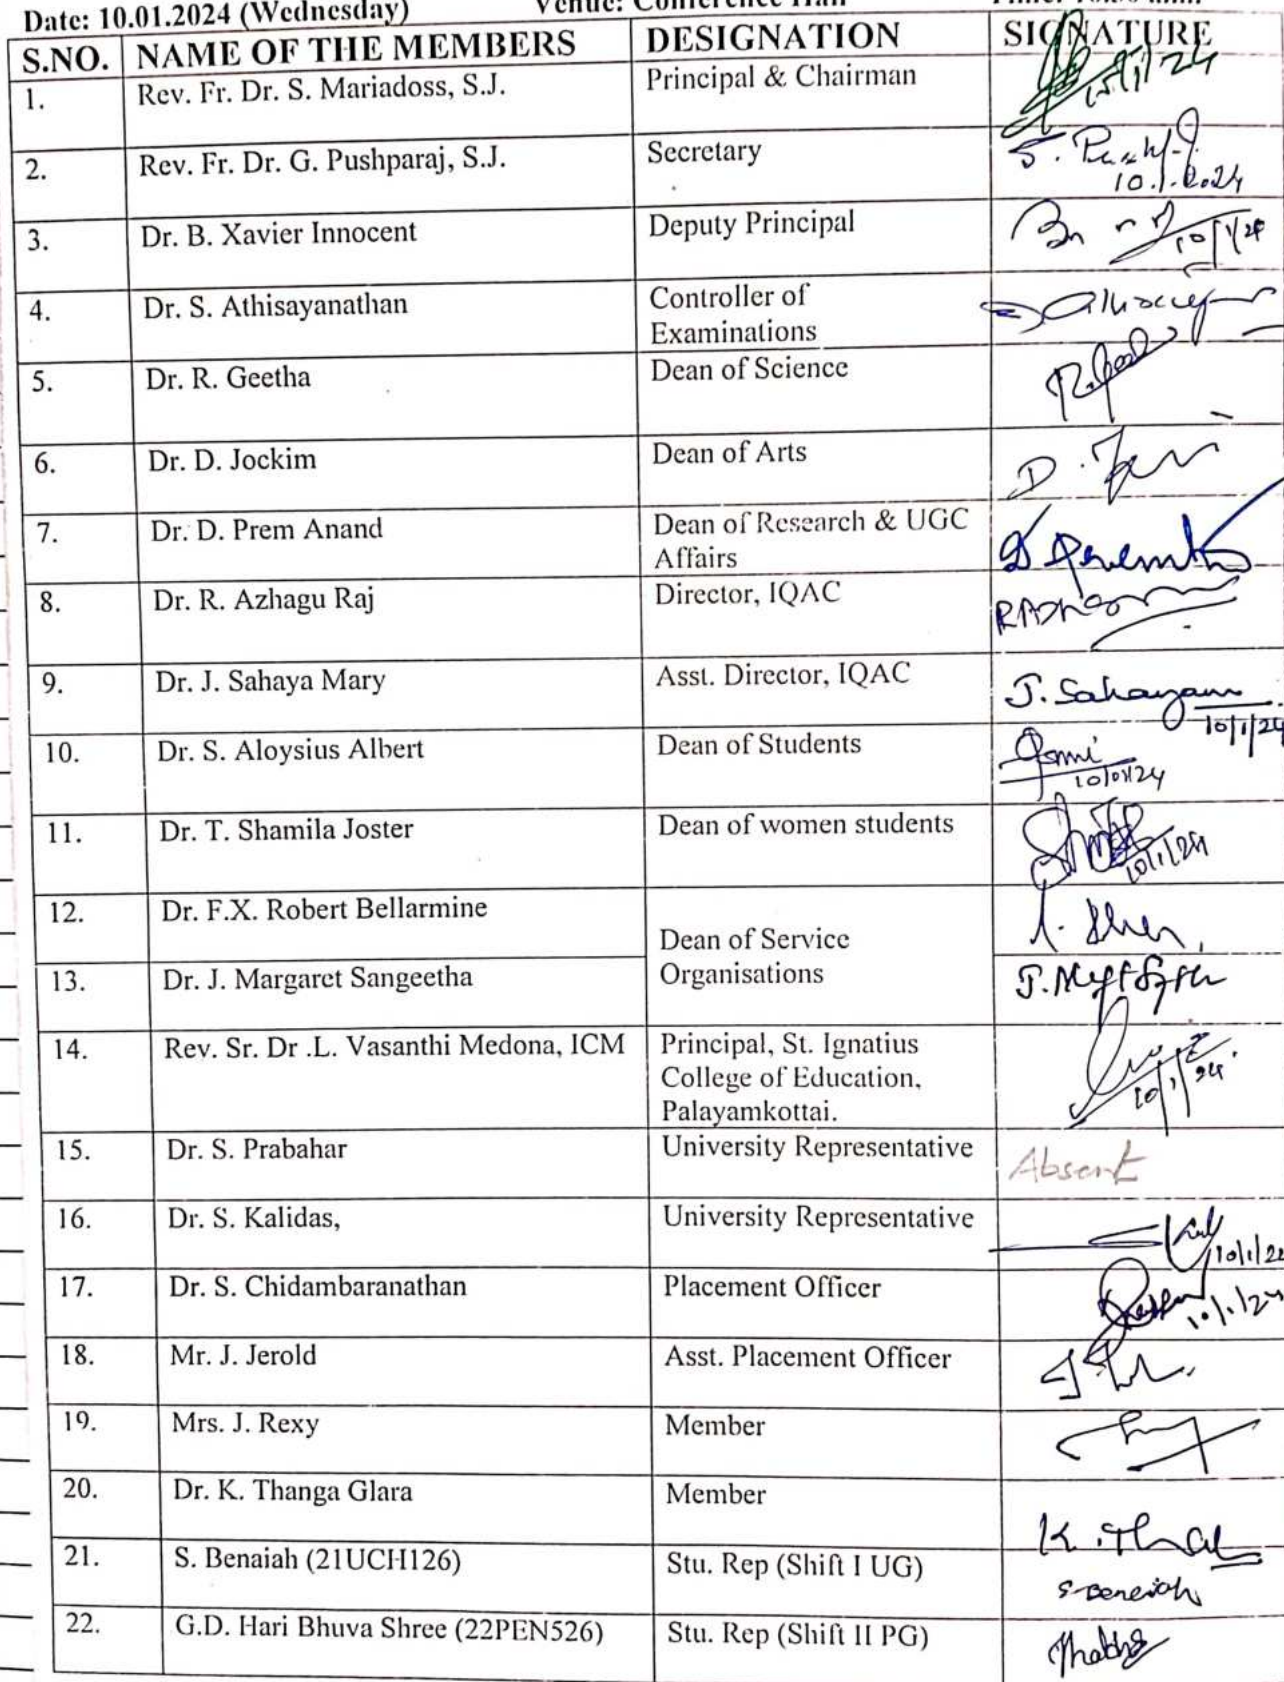 Date: 10.01.2024 (Wednesday) Venue: Conference Hall
S.NO. NAME OF THE MEMBERS DESIGNATION SIGNATURE
1. Rev. Fr. Dr. S. Mariadoss, S.J. Principal & Chairman
2. Rev. Fr. Dr. G. Pushparaj, S.J. Secretary
10.1.2024
3. Dr. B. Xavier Innocent Deputy Principal
10/1/24
4. Dr. S. Athisayanathan Controller of
Examinations
5. Dr. R. Geetha Dean of Science
6. Dr. D. Jockim Dean of Arts
7. Dr. D. Prem Anand Dean of Research & UGC
Affairs
8. Dr. R. Azhagu Raj Director, IQAC
9. Dr. J. Sahaya Mary Asst. Director, IQAC
10/1/24
10. Dr. S. Aloysius Albert Dean of Students
10/01/24
11. Dr. T. Shamila Joster Dean of women students
10/1/24
12. Dr. F.X. Robert Bellarmine
Dean of Service
Organisations
13. Dr. J. Margaret Sangeetha
14. Rev. Sr. Dr .L. Vasanthi Medona, ICM Principal, St. Ignatius
College of Education,
Palayamkottai.
10/1/24.
15. Dr. S. Prabahar University Representative Absent
16. Dr. S. Kalidas, University Representative
10/1/24
17. Dr. S. Chidambaranathan Placement Officer
10/1/24
18. Mr. J. Jerold Asst. Placement Officer
19. Mrs. J. Rexy Member
20. Dr. K. Thanga Glara Member
21. S. Benaiah (21UCH126) Stu. Rep (Shift I UG) S. Benaiah
22. G.D. Hari Bhuva Shree (22PEN526) Stu. Rep (Shift II PG)